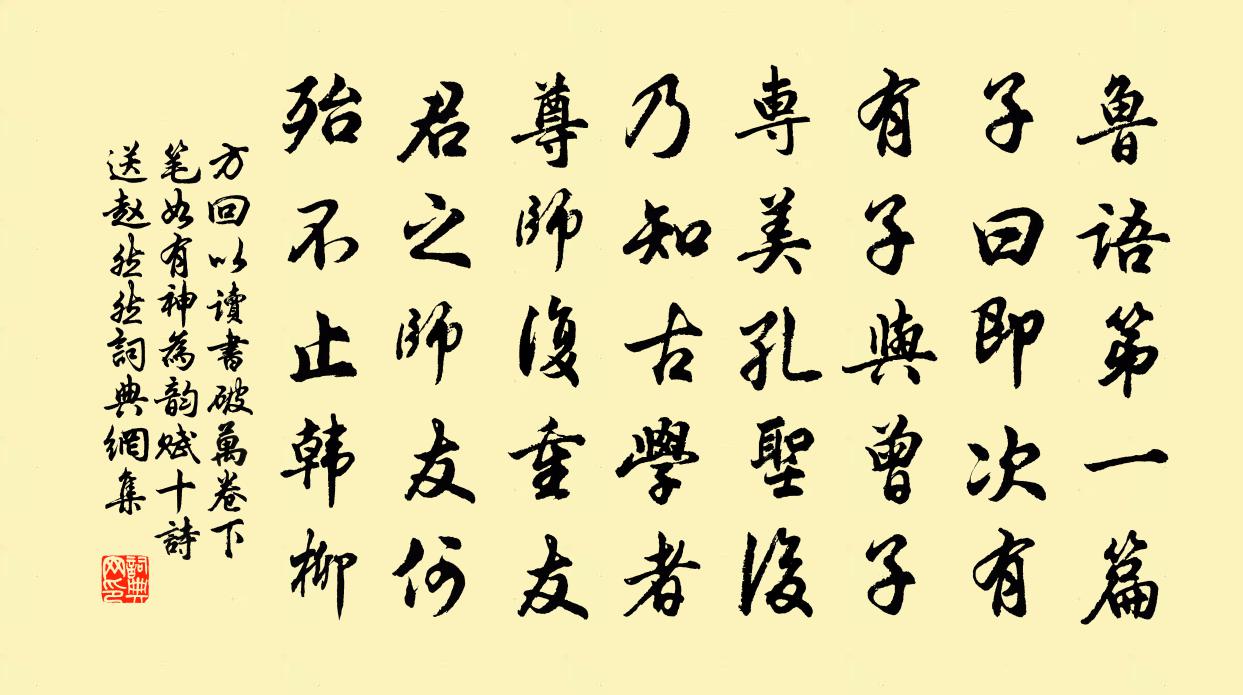 魯語第一篇
子曰即次有
有子與曾子
專美孔聖後
乃知古學者
尊師復重友
君之師友何
殆不止韩柳
方回以讀書破萬卷下
笔如有神為韵赋十詩
送赵然然詞典網集
詞典网印